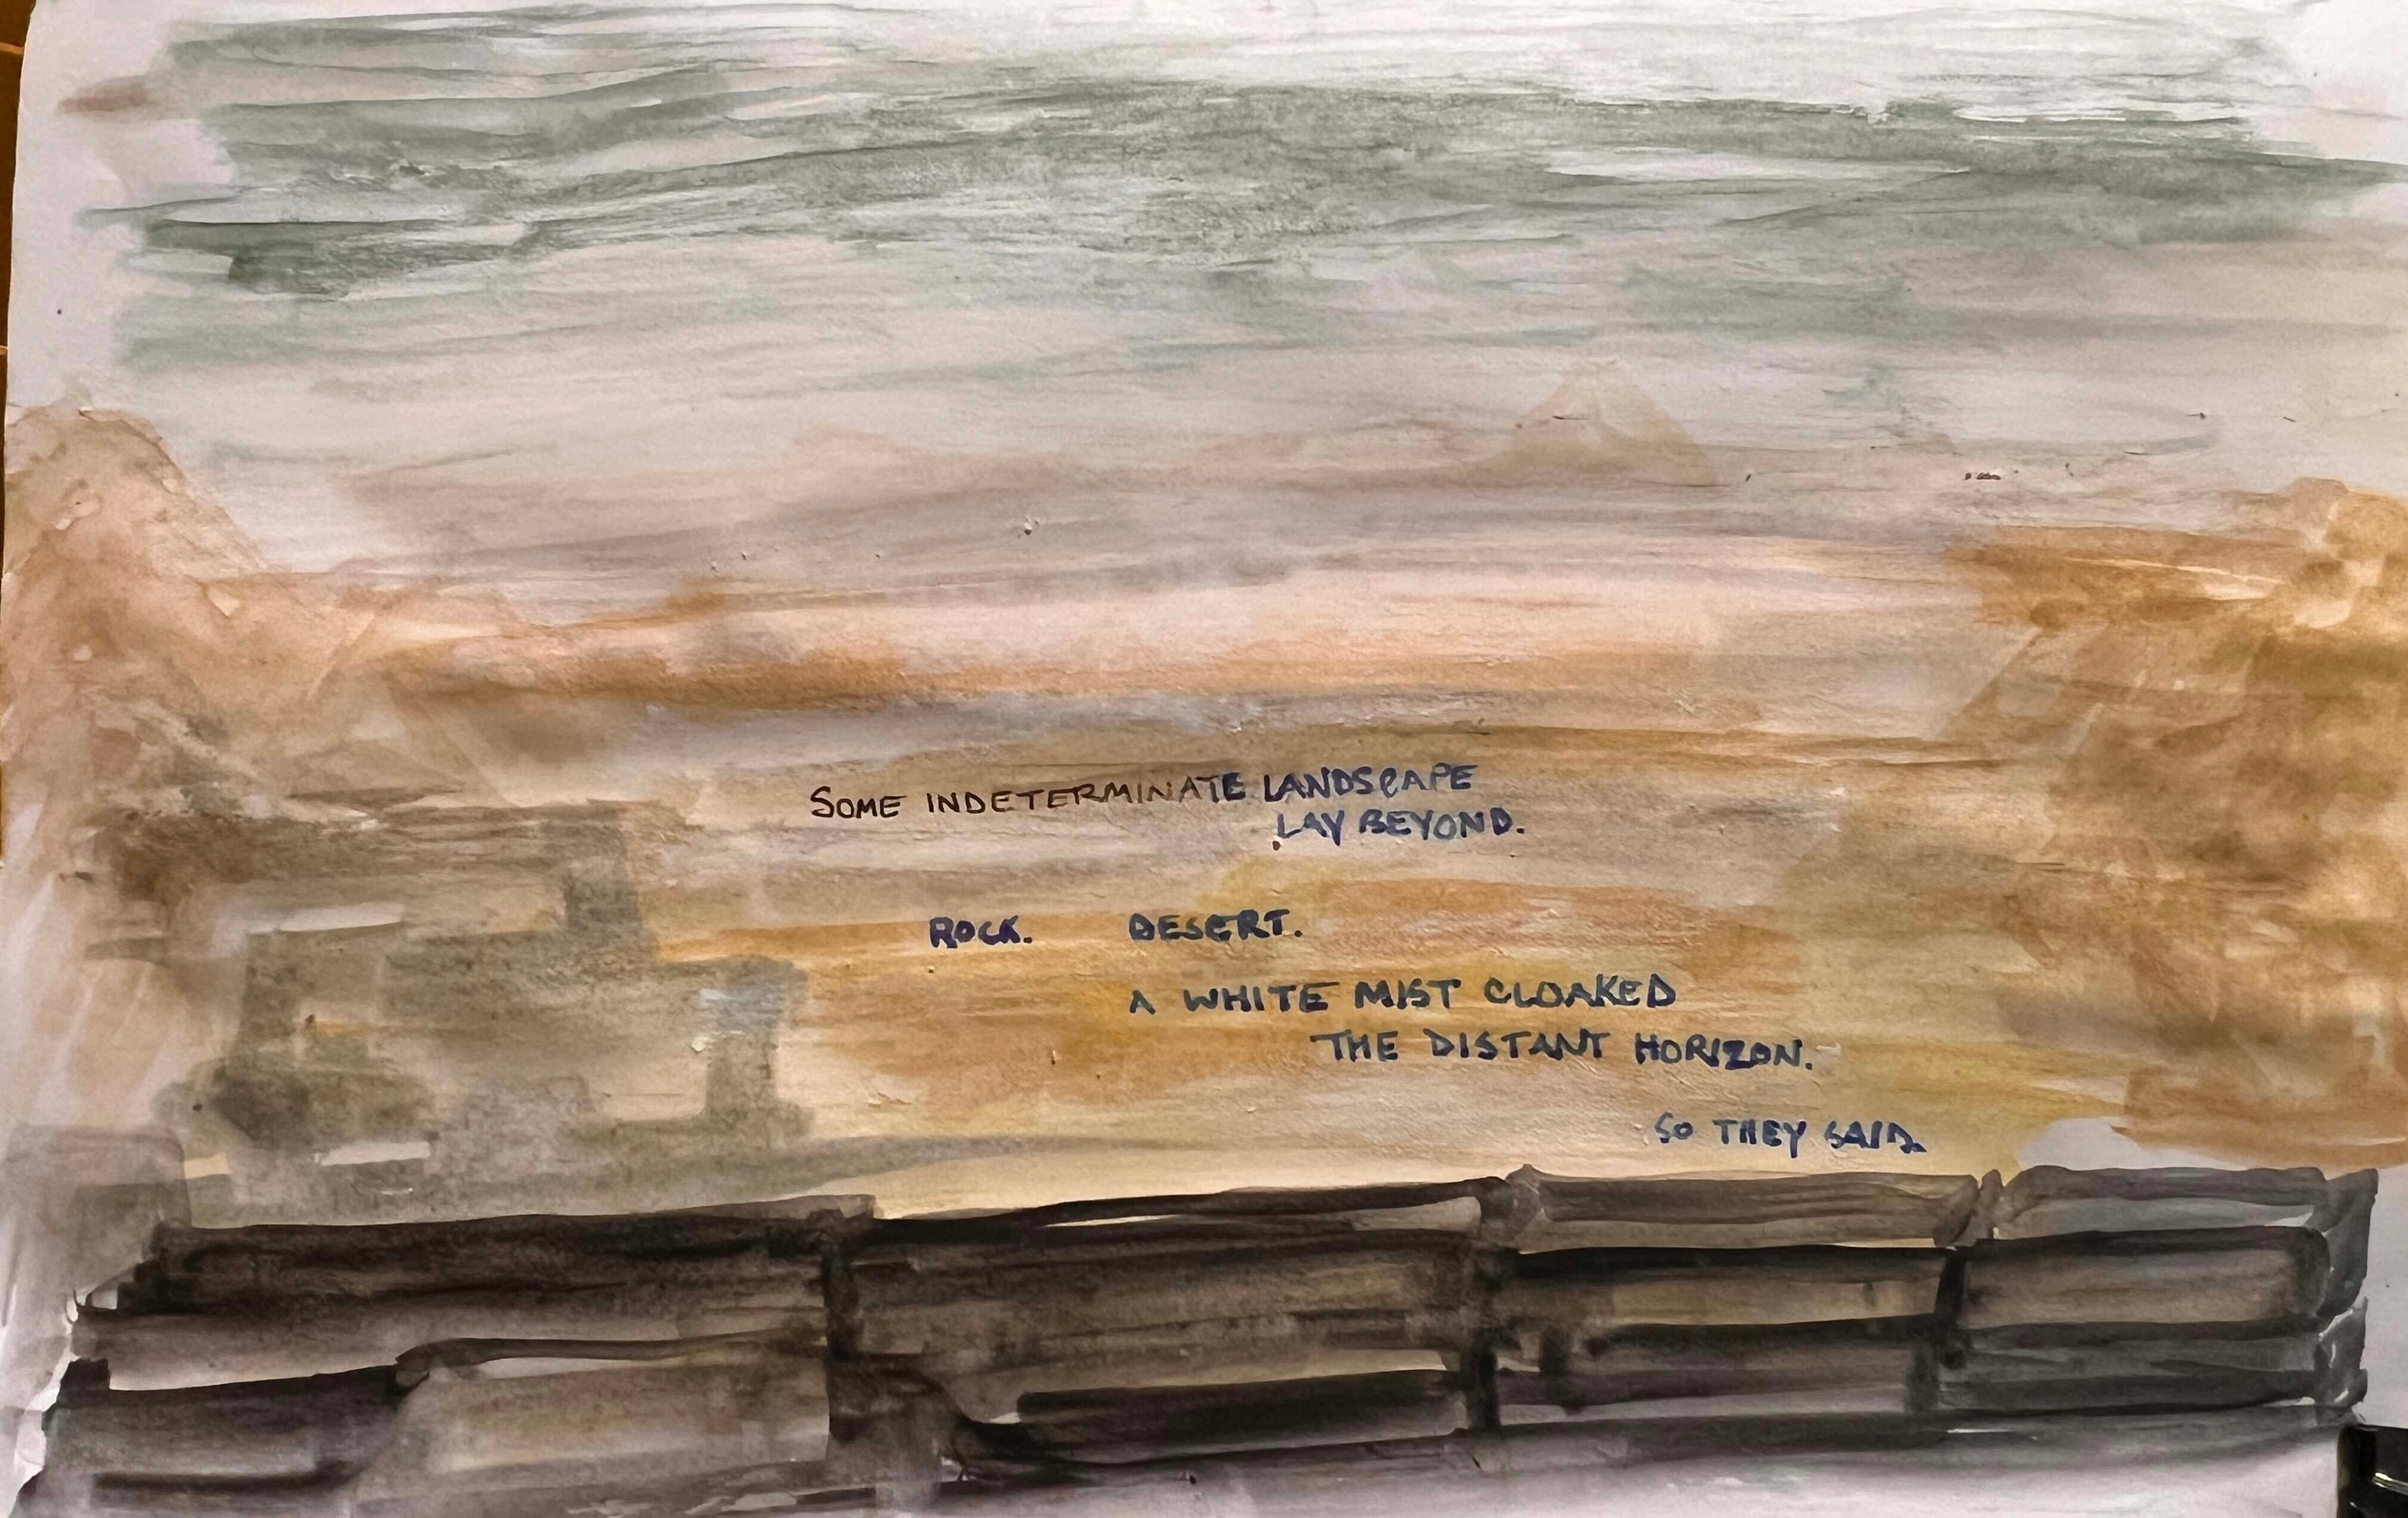 SOME INDETERMINATE LANDSCAPE
LAY BEYOND.
ROCK. DESERT.
A WHITE MIST CLOAKED
THE DISTANT HORIZON.
SO THEY SAID.